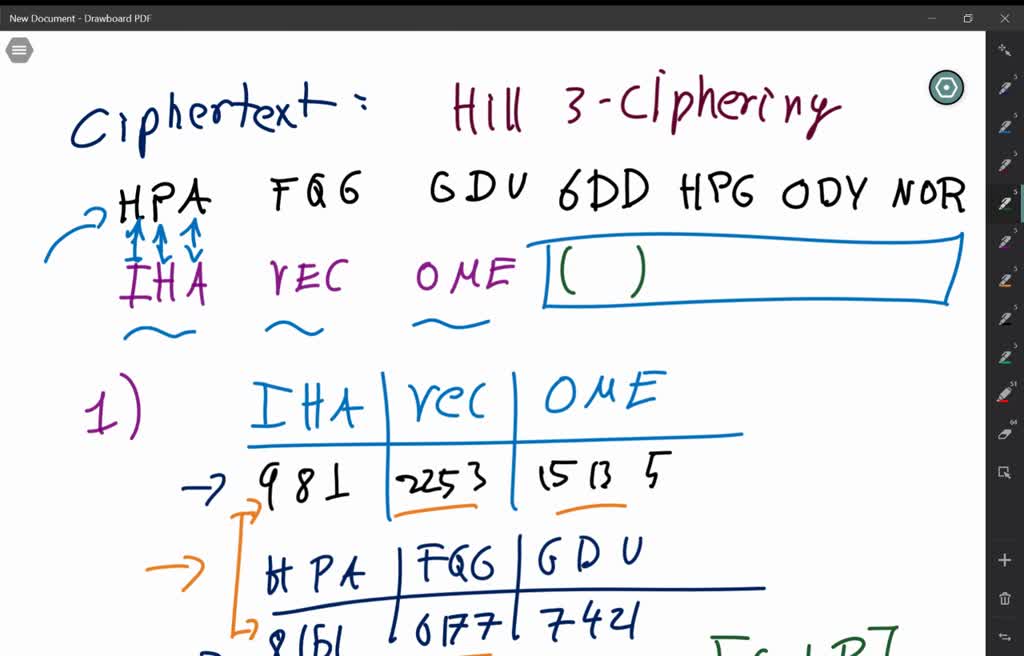 New Document - Drawboard PDF
Ciphertext: Hill 3-Ciphering
HPA FQG GDU GDD HPG ODY NOR
IHA VEC OME ( )
1) IHA VEC OME
→ 9 8 1 22 5 3 15 13 5
→ HPA FQG GDU
8 16 1 6 17 7 7 4 21